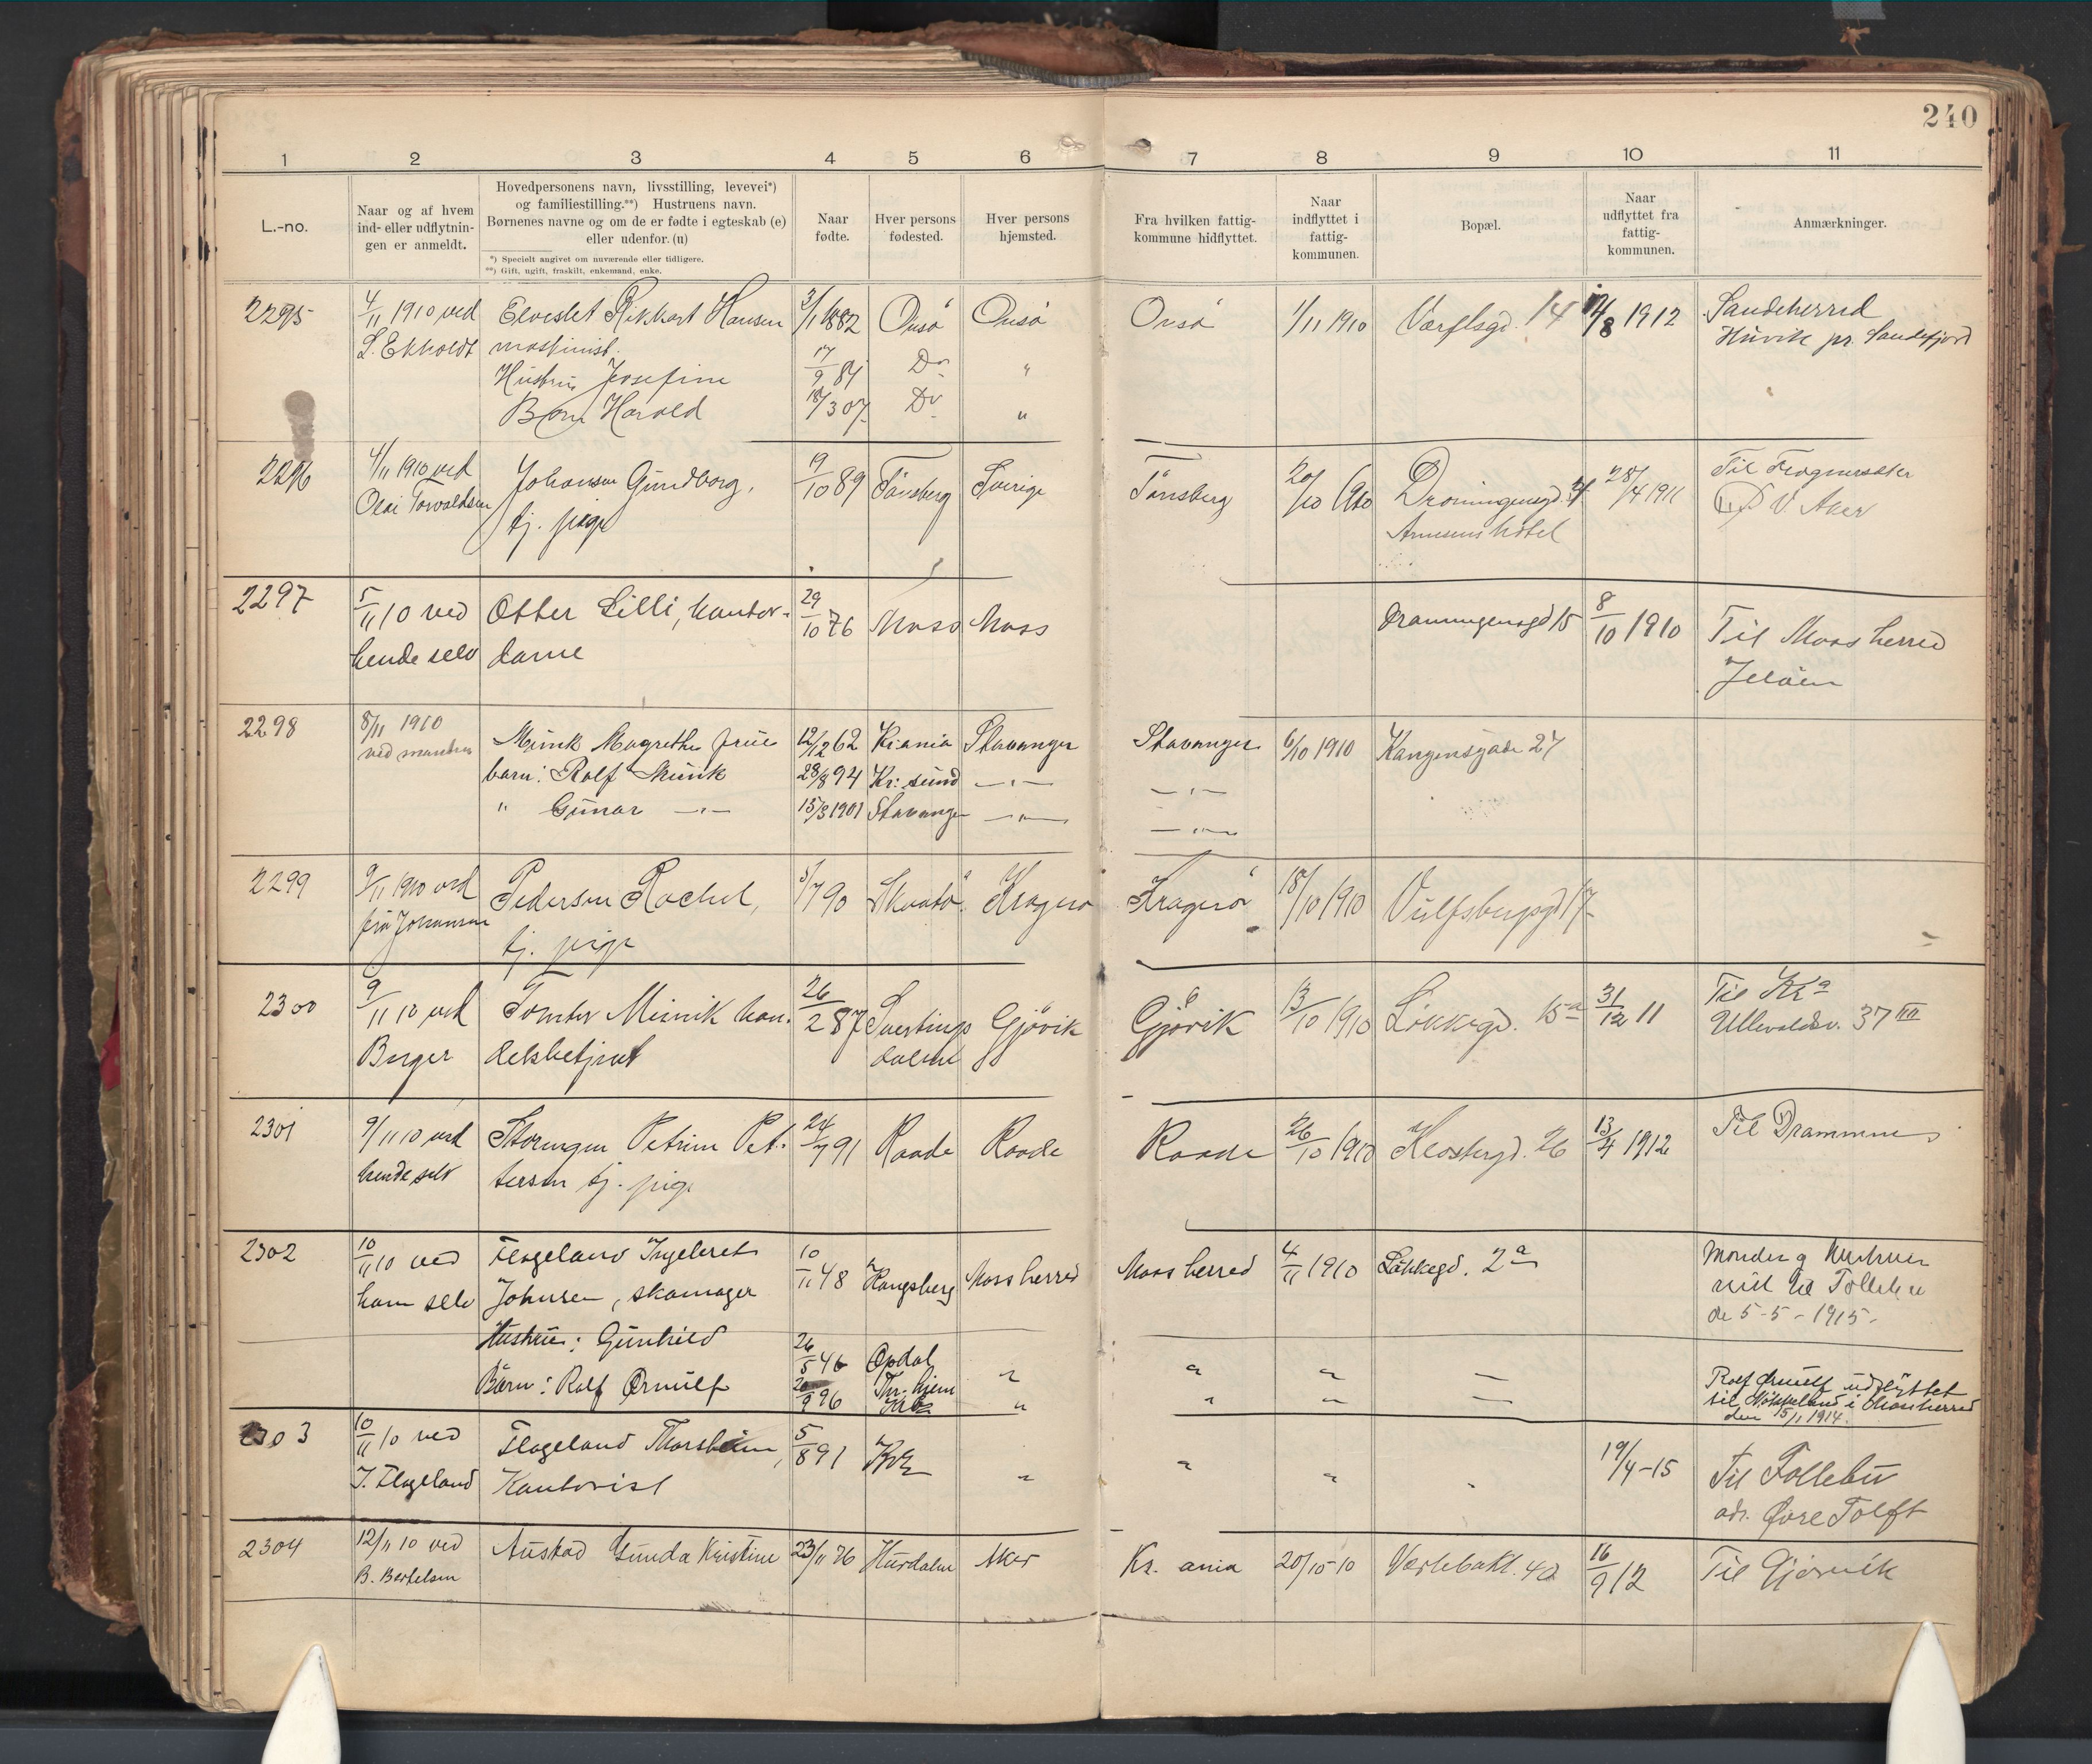 240
1 2 3 4 5 6 7 8 9 10 11
L.-no.
Naar og af hvem
ind- eller udflytnin-
gen er anmeldt.
Hovedpersonens navn, livsstilling, levevei*)
og familiestilling.**) Hustruens navn.
Børnenes navne og om de er fødte i egteskab (e)
eller udenfor. (u)
*) Specielt angivet om nuværende eller tidligere.
**) Gift, ugift, fraskilt, enkemand, enke.
Naar
fødte.
Hver persons
fødested.
Hver persons
hjemsted.
Fra hvilken fattig-
kommune hidflyttet.
Naar
indflyttet i
fattig-
kommunen.
Bopæl.
Naar
udflyttet fra
fattig-
kommunen.
Anmærkninger.
2295 4/11 1910 ved Hansen 3/1 1882 Onsö Onsö Onsö 1/11 1910 Værftsgd. 14 /8 1912 Sandeherred
maskinist. Huvik pr. Sandefjord
Hustru Josefine 17/9 84 Do "
Barn Harald 18/3 07 Do "
2296 4/11 1910 ved Johansen Gundborg, 19/10 89 Tönsberg Sverige Tönsberg 20/10 1910 Dronningensgd. 28/4 1911 Til Frognersæter
Olai Torvaldsen tj. pige Arnesens hotel V. Aker
2297 5/11 10 ved Otter Lilli, kontor- 29/10 76 Moss Moss Dronningensgd 15 8/10 1910 Til Moss herred
hende selv dame Jelöen
2298 8/11 1910 Munk Magrethe frue 12/12 62 Kr.ania Stavanger Stavanger 6/10 1910 Kongensgade 27
ved manden barn: Rolf Munk 28/8 94 Kr: sund —"— —"—
" Gunar —"— 15/3 1901 Stavanger —"— —"—
2299 9/11 1910 ved Pedersen Rachel, 5/7 90 Skaatö Kragerö Kragerö 18/10 1910 Vulfsbergsgd 17
fru Johansen tj. pige
2300 9/11 10 ved Tomter Minik han- 26/2 87 Snertings Gjövik Gjövik 13/10 1910 Lökkegd. 15a 31/12 11 Til Kra
Berger delsbetjent dalen Ullevoldsv. 37 III
2301 9/11 10 ved Petrine Pet- 24/7 91 Raade Raade Raade 26/10 1910 Klostergd. 26 13/4 1912 Til Drammen
hende selv tersen tj. pige
2302 10/11 10 ved Flageland Ingebret 10/11 48 Kongsberg Moss herred Moss herred 4/11 1910 Lökkegd. 2a Manden og hustruen
ham selv Johnsen, skomager reist til Follebu
de 5-5-1915-
Hustru: Gunhild 26/5 46 Opdal " " " —
Börn: Rolf Ørnulf 20/9 96 Tr. hjem " " " — Rolf Ørnulf udflyttet
til Nökkeland i Mossherred
den 15/11 1914.
2303 10/11 10 ved Flageland 5/8 91 " " " " 19/4-15 Til Follebu
J. Flageland Kontorist adr. Øvre Tolft
2304 12/11 10 ved Austad Gunda Kristine 23/11 76 Hurdalen Aker Kr. ania 20/10-10 Værlebakt. 42 16/9 12 Til Gjörvik
B. Bertelsen